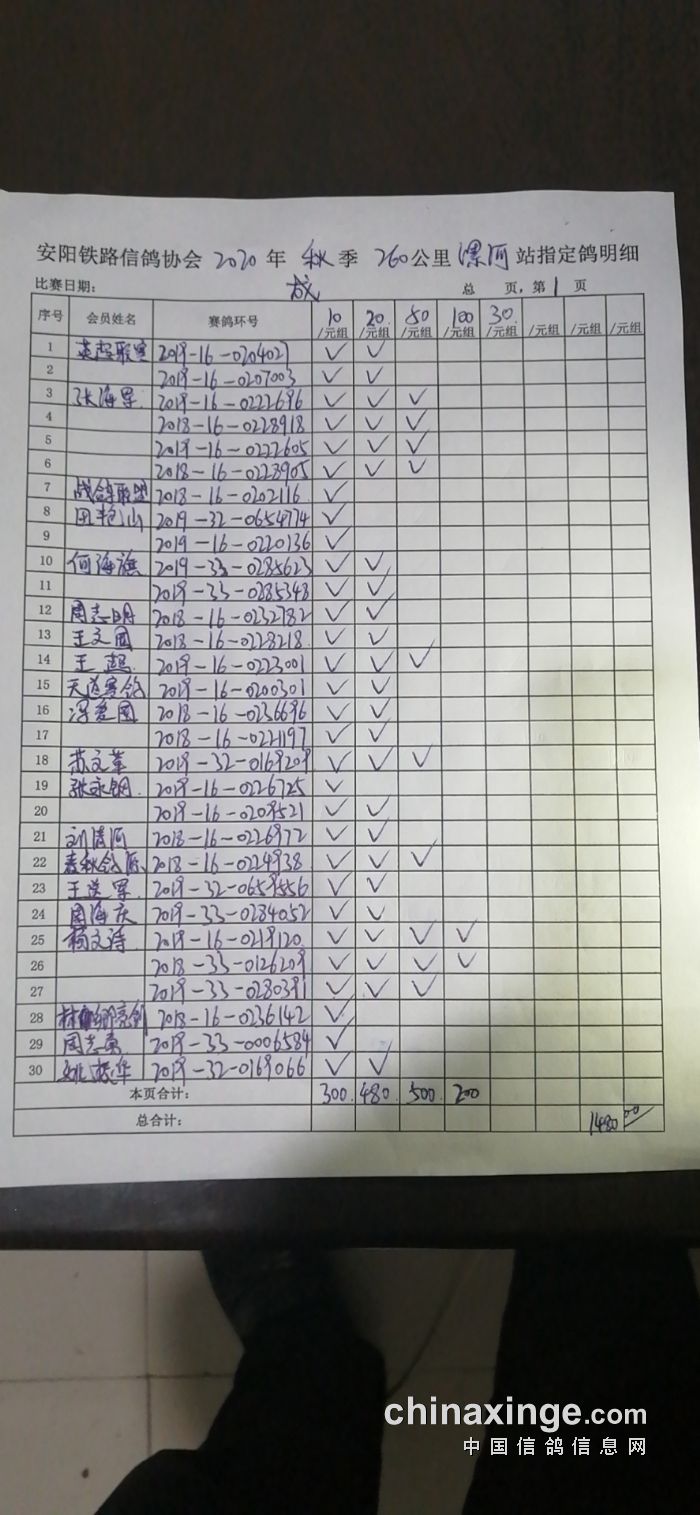 安阳铁路信鸽协会 2020 年 秋 季 260 公里 漯河 站指定鸽明细
比赛日期: 成 总 页,第 1 页
序号 会员姓名 赛鸽环号 10/元组 20/元组 50/元组 100/元组 30/元组 /元组 /元组 /元组
1 2019-16-020402 ✓ ✓
2 2019-16-0207003 ✓ ✓
3 张海军 2019-16-0222696 ✓ ✓ ✓
4 2018-16-0228918 ✓ ✓ ✓
5 2019-16-0222605 ✓ ✓ ✓
6 2018-16-0228905 ✓ ✓ ✓
7 战鸽联盟 2018-16-0202116 ✓
8 田艳山 2019-32-0654774 ✓
9 2019-16-0220136 ✓
10 何海旗 2019-33-0285623 ✓ ✓
11 2019-33-0285348 ✓ ✓
12 周志明 2018-16-0232782 ✓ ✓
13 王文国 2018-16-0228218 ✓ ✓
14 王超 2019-16-0223001 ✓ ✓ ✓
15 天道赛鸽 2019-16-0200301 ✓ ✓
16 冯爱国 2018-16-0236696 ✓ ✓
17 2018-16-0221197 ✓ ✓
18 苏文革 2019-32-0169209 ✓ ✓ ✓
19 张永钢 2019-16-0226725 ✓
20 2019-16-0209521 ✓ ✓
21 刘清河 2018-16-0226972 ✓ ✓
22 春秋鸽 2018-16-0224938 ✓ ✓ ✓
23 王洪军 2019-32-0659556 ✓ ✓
24 周海庆 2019-33-0284052 ✓ ✓
25 杨文涛 2019-16-0219120 ✓ ✓ ✓ ✓
26 2018-33-0126209 ✓ ✓ ✓ ✓
27 2019-33-0280391 ✓ ✓ ✓
28 2018-16-0236142 ✓
29 周志勇 2019-33-0006584 ✓
30 2019-32-0169066 ✓ ✓
本页合计: 300 480 500 200
总合计: 1480.00
chinaxinge.com
中国信鸽信息网